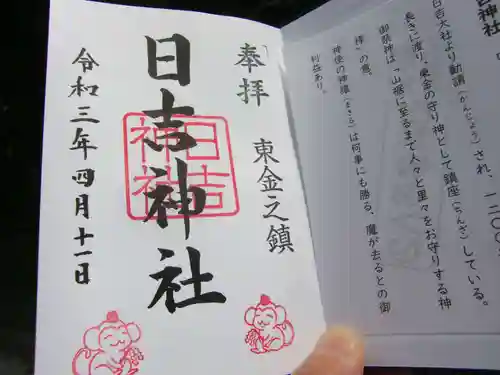 奉拝
東金之鎮
日吉神社
日吉神社
令和三年四月十一日
吉神社
日吉大社より勧請(かんじょう)され、一二〇〇
長きに渡り、東金の守り神として鎮座(ちんざ)している。
御祭神は「山裾に至るまで人々と里々をお守りする神
様」の意。
神使の神猿(まさる)は何事にも勝る、魔が去るとの御
利益あり。